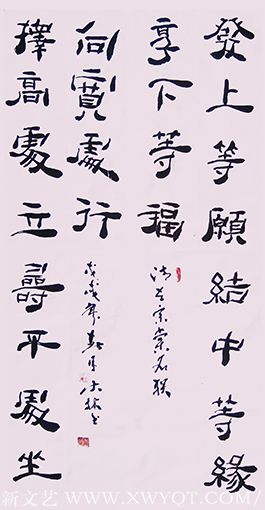 發上等願結中等緣
享下等福
清左宗棠名联
擇高處立尋平處坐
向寬處行
戊戌年春月
新文艺 WWW.XWYQT.COM